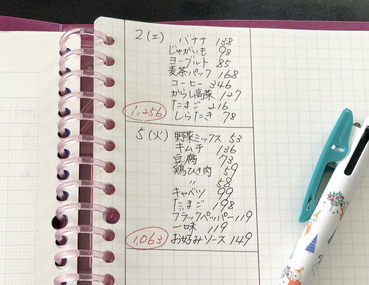 2(土) バナナ 138
じゃがいも 98
ヨーグルト 85
麦茶パック 168
コーヒー 346
からし高菜 127
たまご 216
1,256 しらたき 78
5(火) 野菜ミックス 53
キムチ 136
豆腐 73
鶏ひき肉 59
〃 58
キャベツ 99
たまご 198
ブラックペッパー 119
一味 119
1,063 お好みソース 149